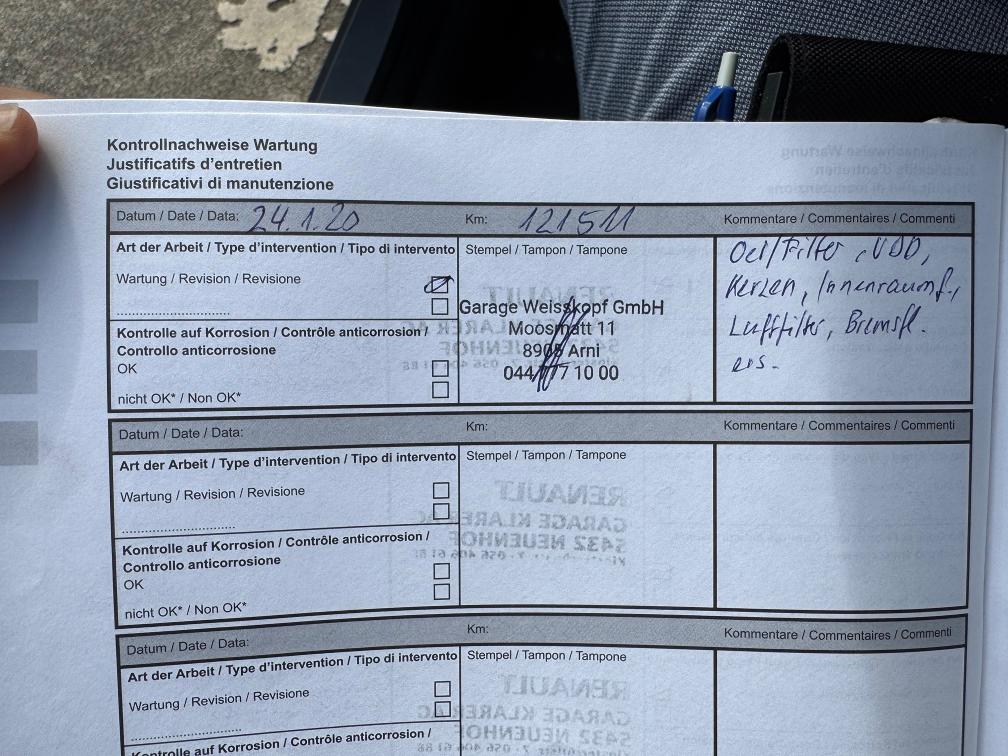 Kontrollnachweise Wartung
Justificatifs d'entretien
Giustificativi di manutenzione
Datum / Date / Data: 24.1.20 Km: 121511 Kommentare / Commentaires / Commenti
Art der Arbeit / Type d'intervention / Tipo di intervento
Wartung / Revision / Revisione
Kontrolle auf Korrosion / Contrôle anticorrosion /
Controllo anticorrosione
OK
nicht OK* / Non OK*
Stempel / Tampon / Tampone
Garage Weisskopf GmbH
Moosmatt 11
8905 Arni
044 777 10 00
Oel/Filter, VDD,
Kerzen, Innenraumf.,
Luftfilter, Bremsfl.
ers.
Datum / Date / Data: Km: Kommentare / Commentaires / Commenti
Art der Arbeit / Type d'intervention / Tipo di intervento
Wartung / Revision / Revisione
Kontrolle auf Korrosion / Contrôle anticorrosion /
Controllo anticorrosione
OK
nicht OK* / Non OK*
Stempel / Tampon / Tampone
RENAULT
GARAGE KLARER AG
5432 NEUENHOF
Datum / Date / Data: Km: Kommentare / Commentaires / Commenti
Art der Arbeit / Type d'intervention / Tipo di intervento
Wartung / Revision / Revisione
Kontrolle auf Korrosion / Contrôle anticorrosion /
Stempel / Tampon / Tampone
RENAULT
GARAGE KLARER AG
5432 NEUENHOF